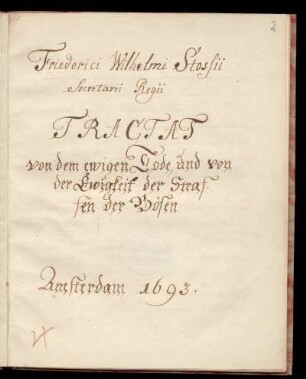 2
Friederici Wilhelmi Stossii
Secretarii Regii
TRACTAT
von dem ewigen Tode, und von
der Ewigkeit der Straf-
fen der Bösen
Amsterdam 1693.